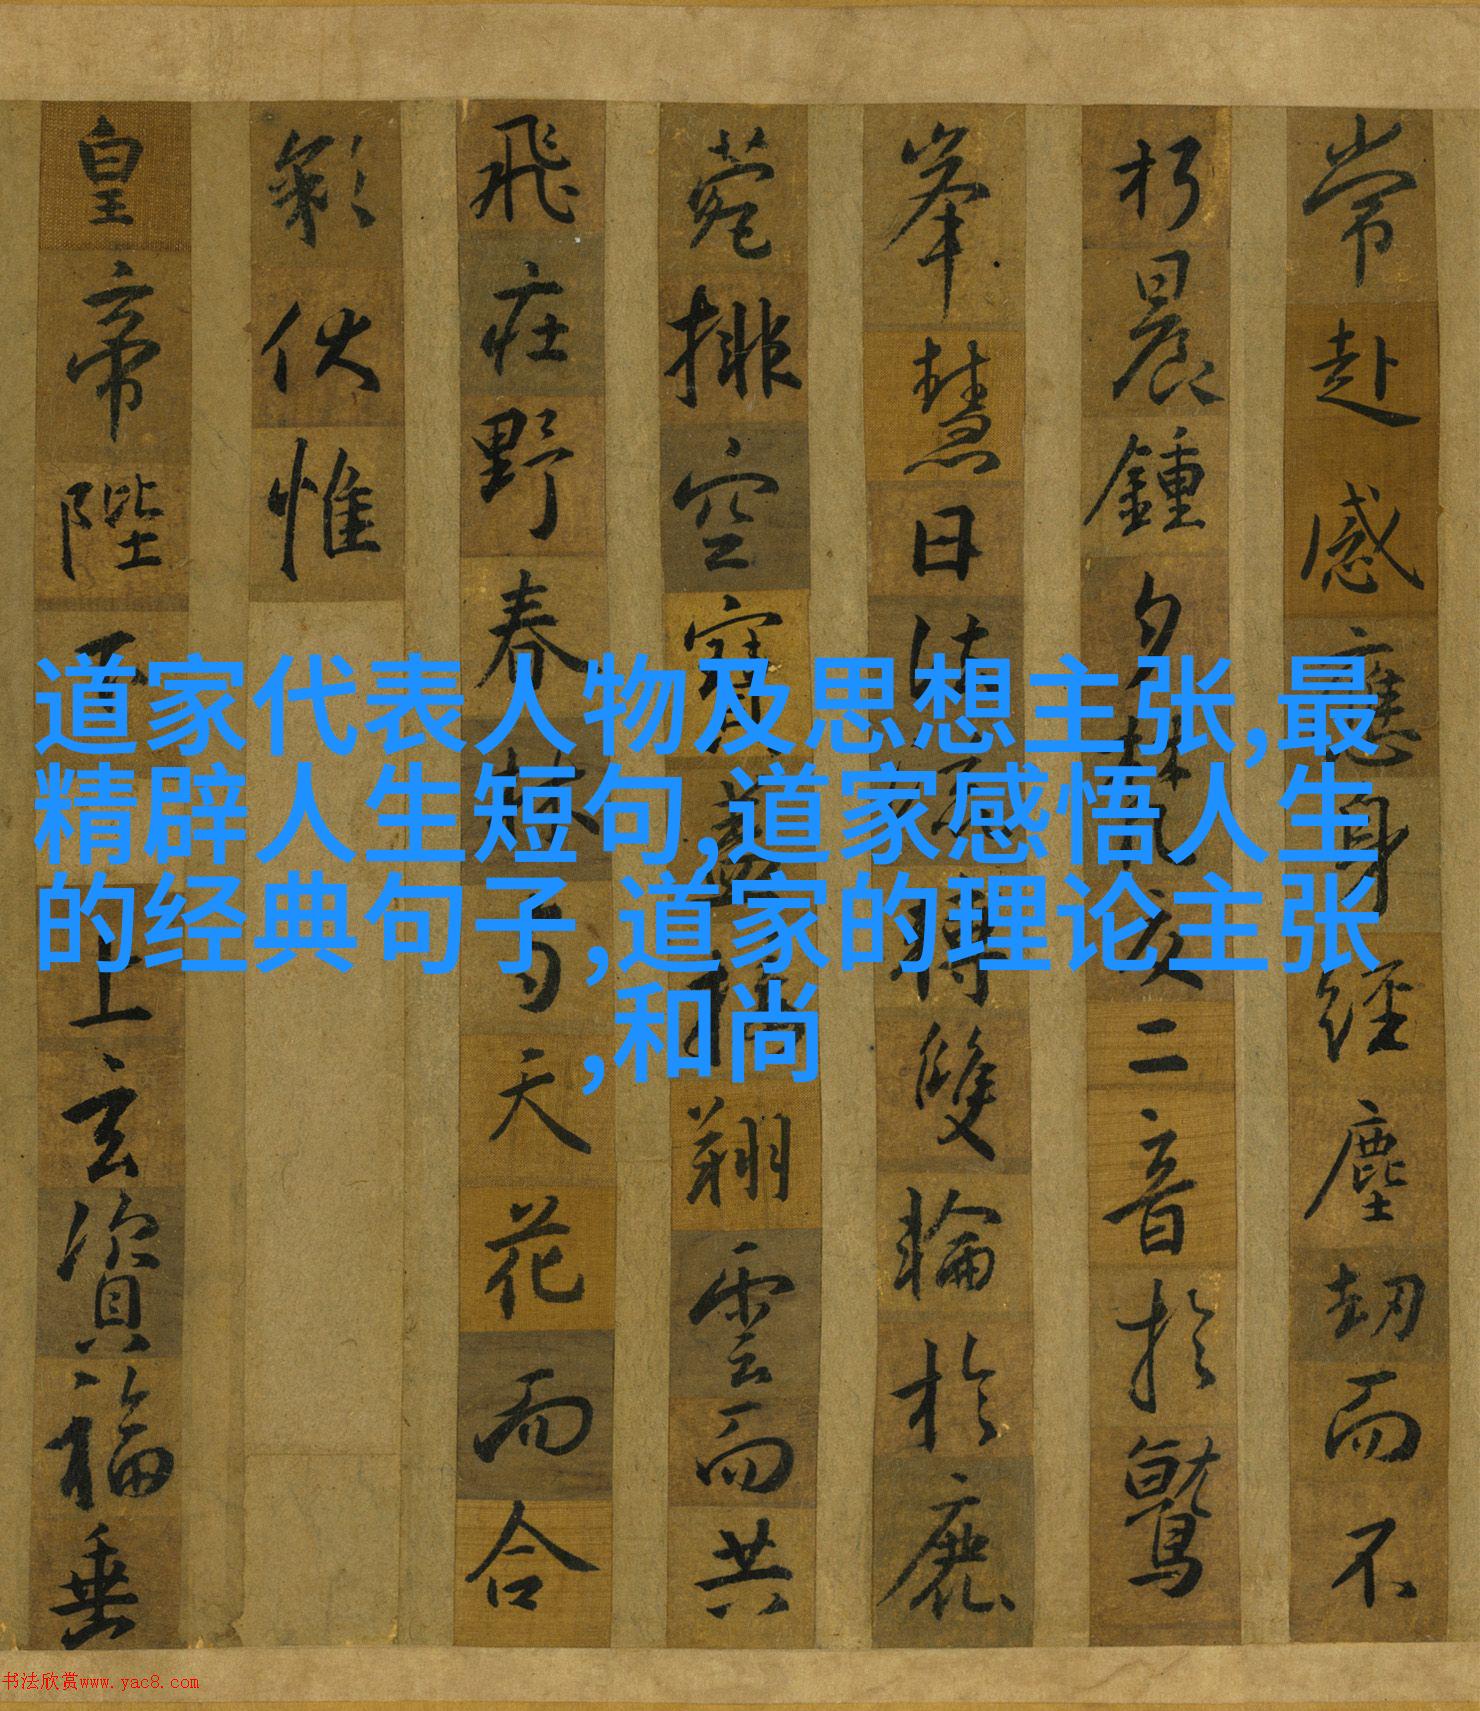 常赴感應身經塵劫而不
朽晨鍾夕梵交二音於鷲
峯慧日法流轉雙輪於鹿
菀排空寶蓋接翔雲而共
飛莊野春林与天花而合
彩伏惟
皇帝陛下上玄資福垂
道家代表人物及思想主张,最
精辟人生短句,道家感悟人生
的经典句子,道家的理论主张
,和尚
书法欣赏www.yac8.com